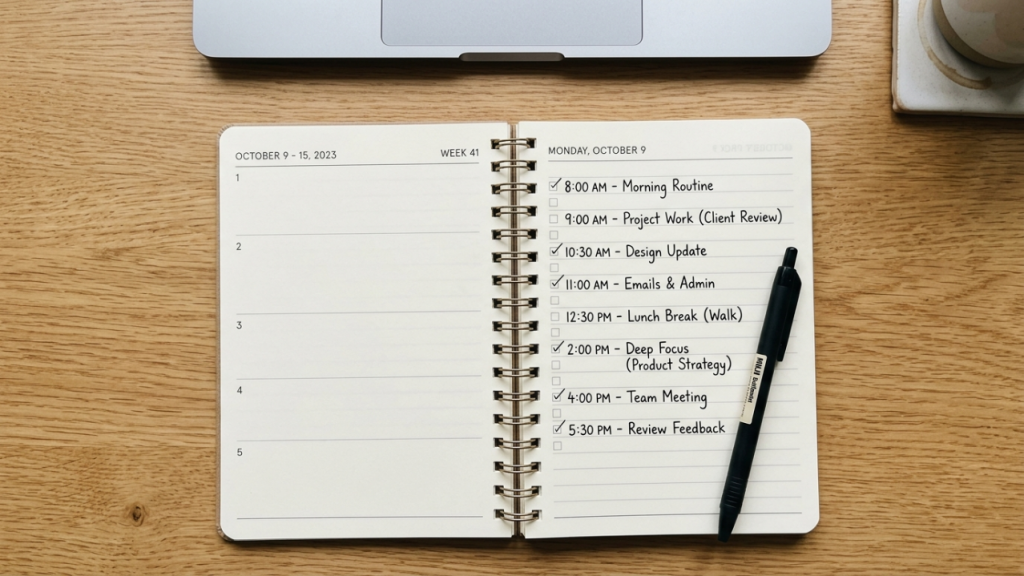 OCTOBER 9 - 15, 2023
WEEK 41
1
2
3
4
5
MONDAY, OCTOBER 9
8:00 AM - Morning Routine
9:00 AM - Project Work (Client Review)
10:30 AM - Design Update
11:00 AM - Emails & Admin
12:30 PM - Lunch Break (Walk)
2:00 PM - Deep Focus
(Product Strategy)
4:00 PM - Team Meeting
5:30 PM - Review Feedback